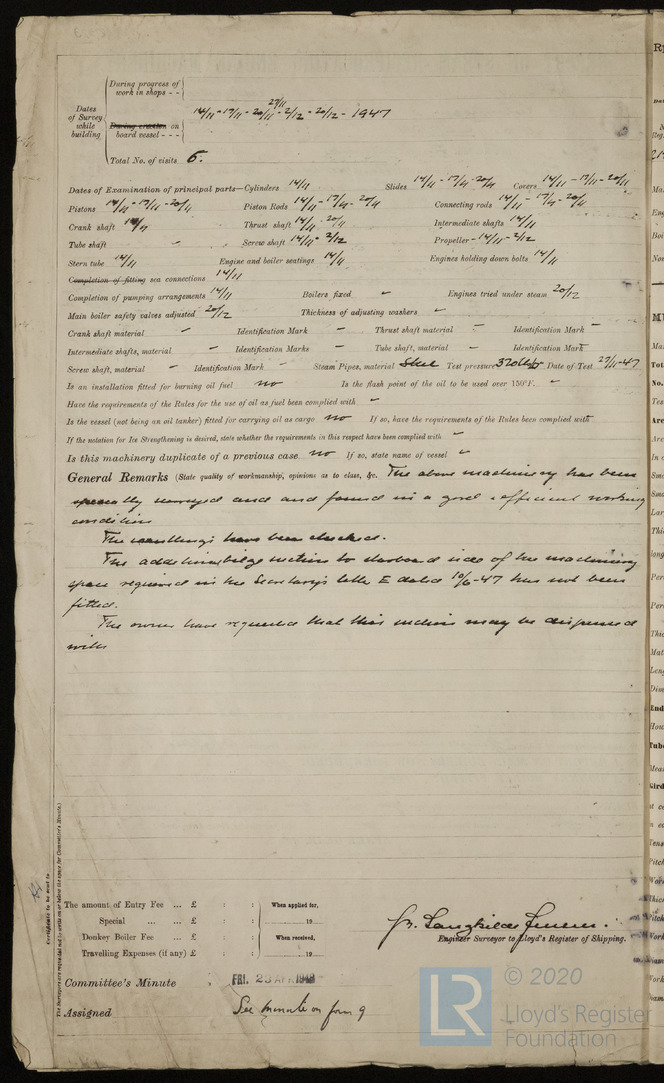 During progress of
work in shops - -
Dates
of Survey
while
building
27/11
14/11 - 17/11 - 20/11 - 2/12 - 20/12 - 1947
During erection on
board vessel - - -
Total No. of visits 6.
Dates of Examination of principal parts—Cylinders 14/11 Slides 14/11 - 17/11 - 20/11 Covers 14/11 - 17/11 - 20/11
Pistons 14/11 - 17/11 - 20/11 Piston Rods 14/11 - 17/11 - 20/11 Connecting rods 14/11 - 17/11 - 20/11
Crank shaft 14/11 Thrust shaft 14/11 - 20/11 Intermediate shafts 14/11
Tube shaft - Screw shaft 14/11 - 2/12 Propeller - 14/11 - 2/12
Stern tube 14/11 Engine and boiler seatings 14/11 Engines holding down bolts 14/11
Completion of fitting sea connections 14/11
Completion of pumping arrangements 14/11 Boilers fixed - Engines tried under steam 20/12
Main boiler safety valves adjusted 20/12 Thickness of adjusting washers -
Crank shaft material - Identification Mark - Thrust shaft material - Identification Mark -
Intermediate shafts, material - Identification Marks - Tube shaft, material - Identification Mark -
Screw shaft, material - Identification Mark - Steam Pipes, material Steel Test pressure 320 lb Date of Test 27/11-47
Is an installation fitted for burning oil fuel no Is the flash point of the oil to be used over 150°F. -
Have the requirements of the Rules for the use of oil as fuel been complied with -
Is the vessel (not being an oil tanker) fitted for carrying oil as cargo no If so, have the requirements of the Rules been complied with -
If the notation for Ice Strengthening is desired, state whether the requirements in this respect have been complied with -
Is this machinery duplicate of a previous case no If so, state name of vessel -
General Remarks (State quality of workmanship, opinions as to class, &c. The above machinery has been
specially surveyed and and found in a good & efficient working
condition
The scantlings have been checked.
The additional bilge suction to starboard side of the machinery
space required in the Secretary's letter E dated 10/6-47 has not been
fitted.
The owners have requested that this suction may be dispensed
with
The amount of Entry Fee ... £ : : When applied for,
Special ... ... £ : : 19
Donkey Boiler Fee ... £ : : When received,
Travelling Expenses (if any) £ : : 19
Engineer Surveyor to Lloyd's Register of Shipping.
Committee's Minute FRI. 23 APR 1948
Assigned See minute on form 9
© 2020
LR
Lloyd's Register
Foundation